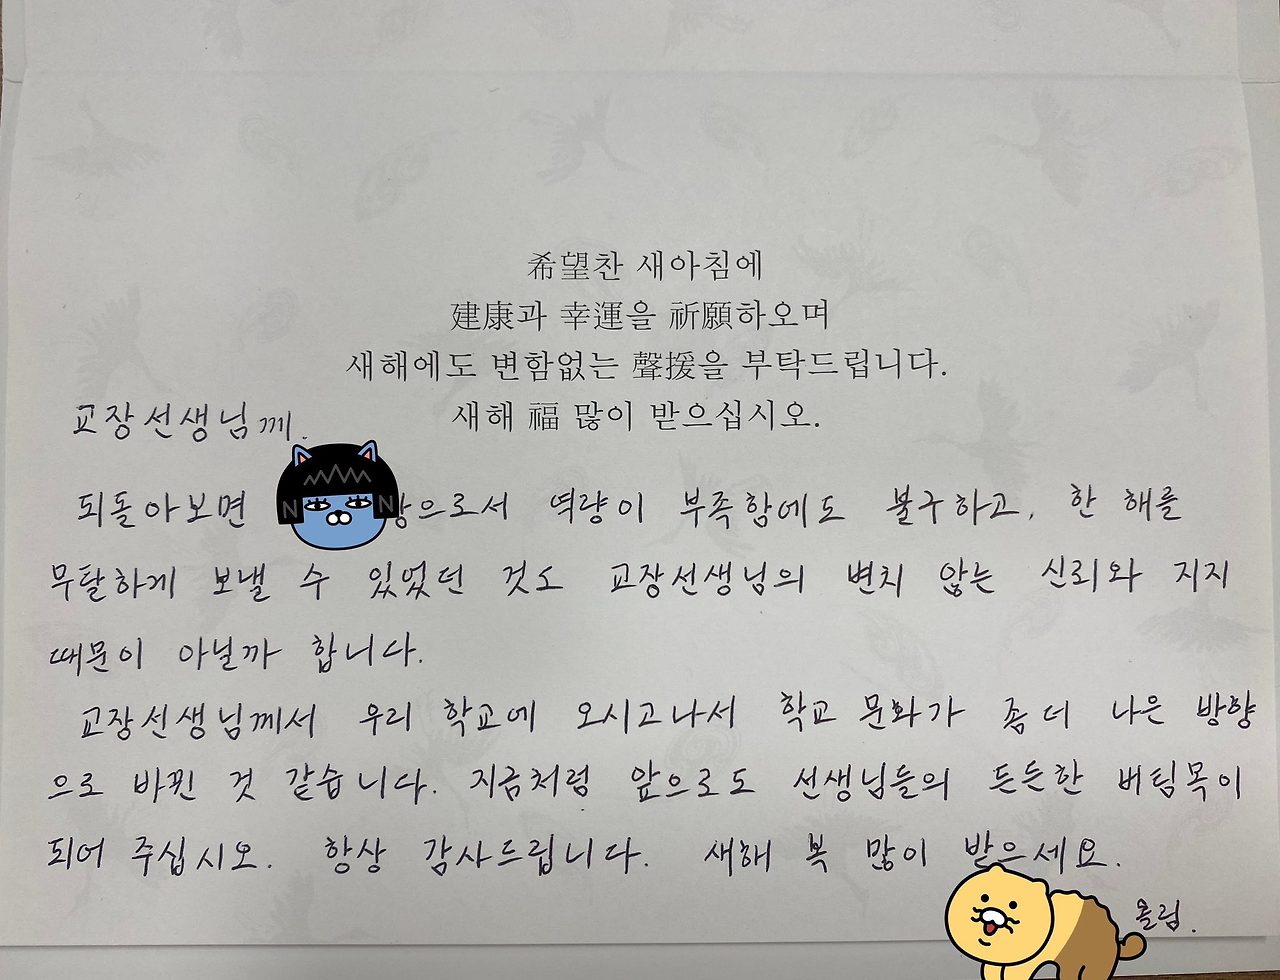 希望찬 새아침에
建康과 幸運을 祈願하오며
새해에도 변함없는 聲援을 부탁드립니다.
새해 福 많이 받으십시오.
교장선생님께.
되돌아보면 으로서 역량이 부족함에도 불구하고, 한 해를
무탈하게 보낼 수 있었던 것도 교장선생님의 변치 않는 신뢰와 지지
때문이 아닐까 합니다.
교장선생님께서 우리 학교에 오시고나서 학교 문화가 좀 더 나은 방향
으로 바뀐 것 같습니다. 지금처럼 앞으로도 선생님들의 든든한 버팀목이
되어 주십시오. 항상 감사드립니다. 새해 복 많이 받으세요.
올림.